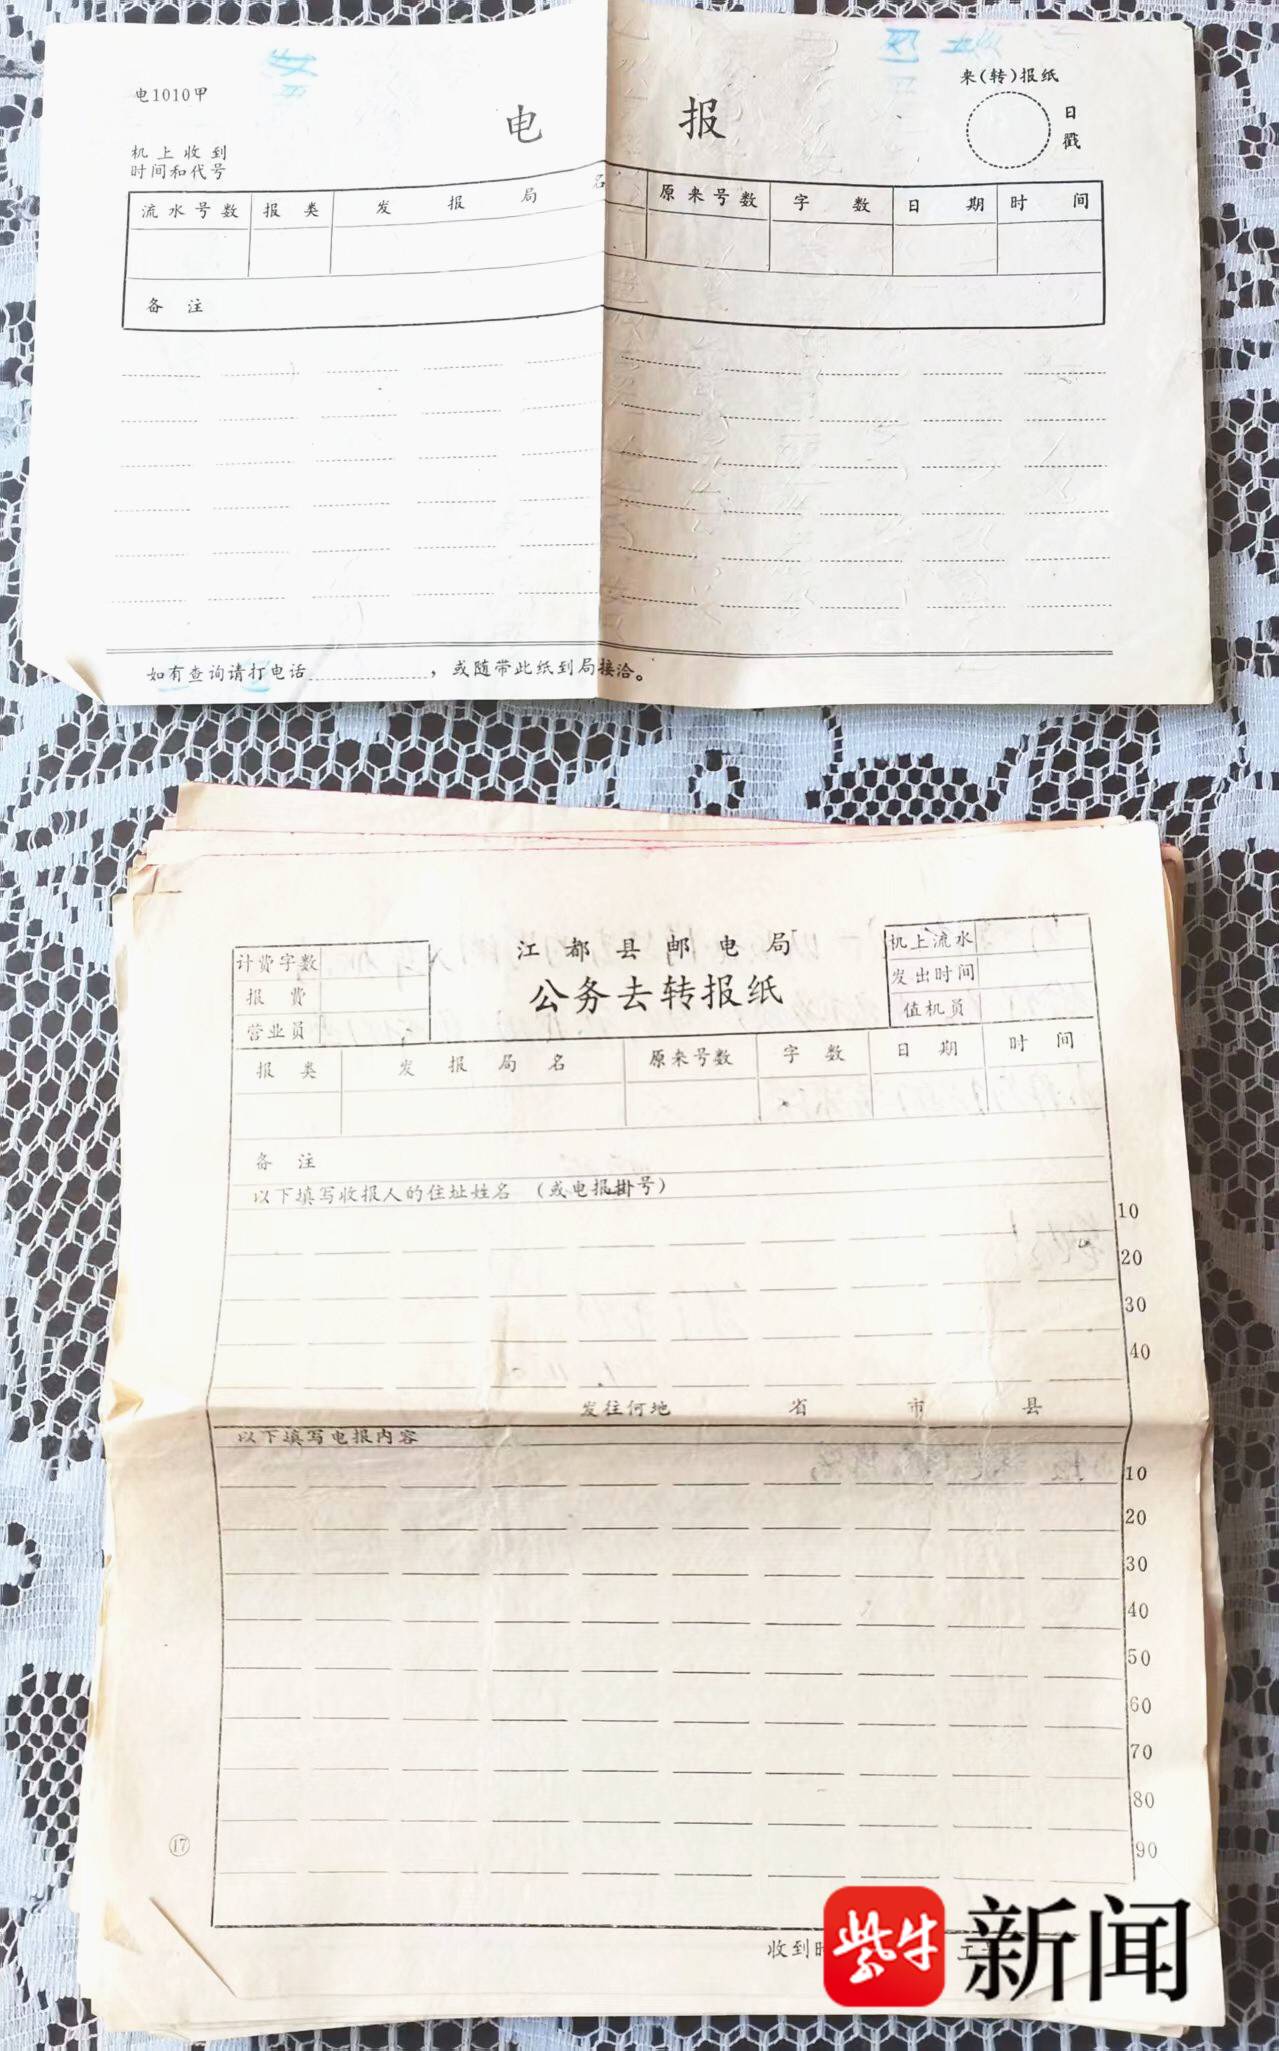 电1010甲
来(转)报纸
电 报
日戳
机上收到
时间和代号
流水号数 报类 发报局名 原来号数 字数 日期 时间
备注
如有查询请打电话 ，或随带此纸到局接洽。
江都县邮电局
公务去转报纸
计费字数
报费
营业员
机上流水
发出时间
值机员
报类 发报局名 原来号数 字数 日期 时间
备注
以下填写收报人的住址姓名 （或电报掛号）
10
20
30
40
发往何地 省 市 县
以下填写电报内容
10
20
30
40
50
60
70
80
90
17
收到
紫牛 新闻